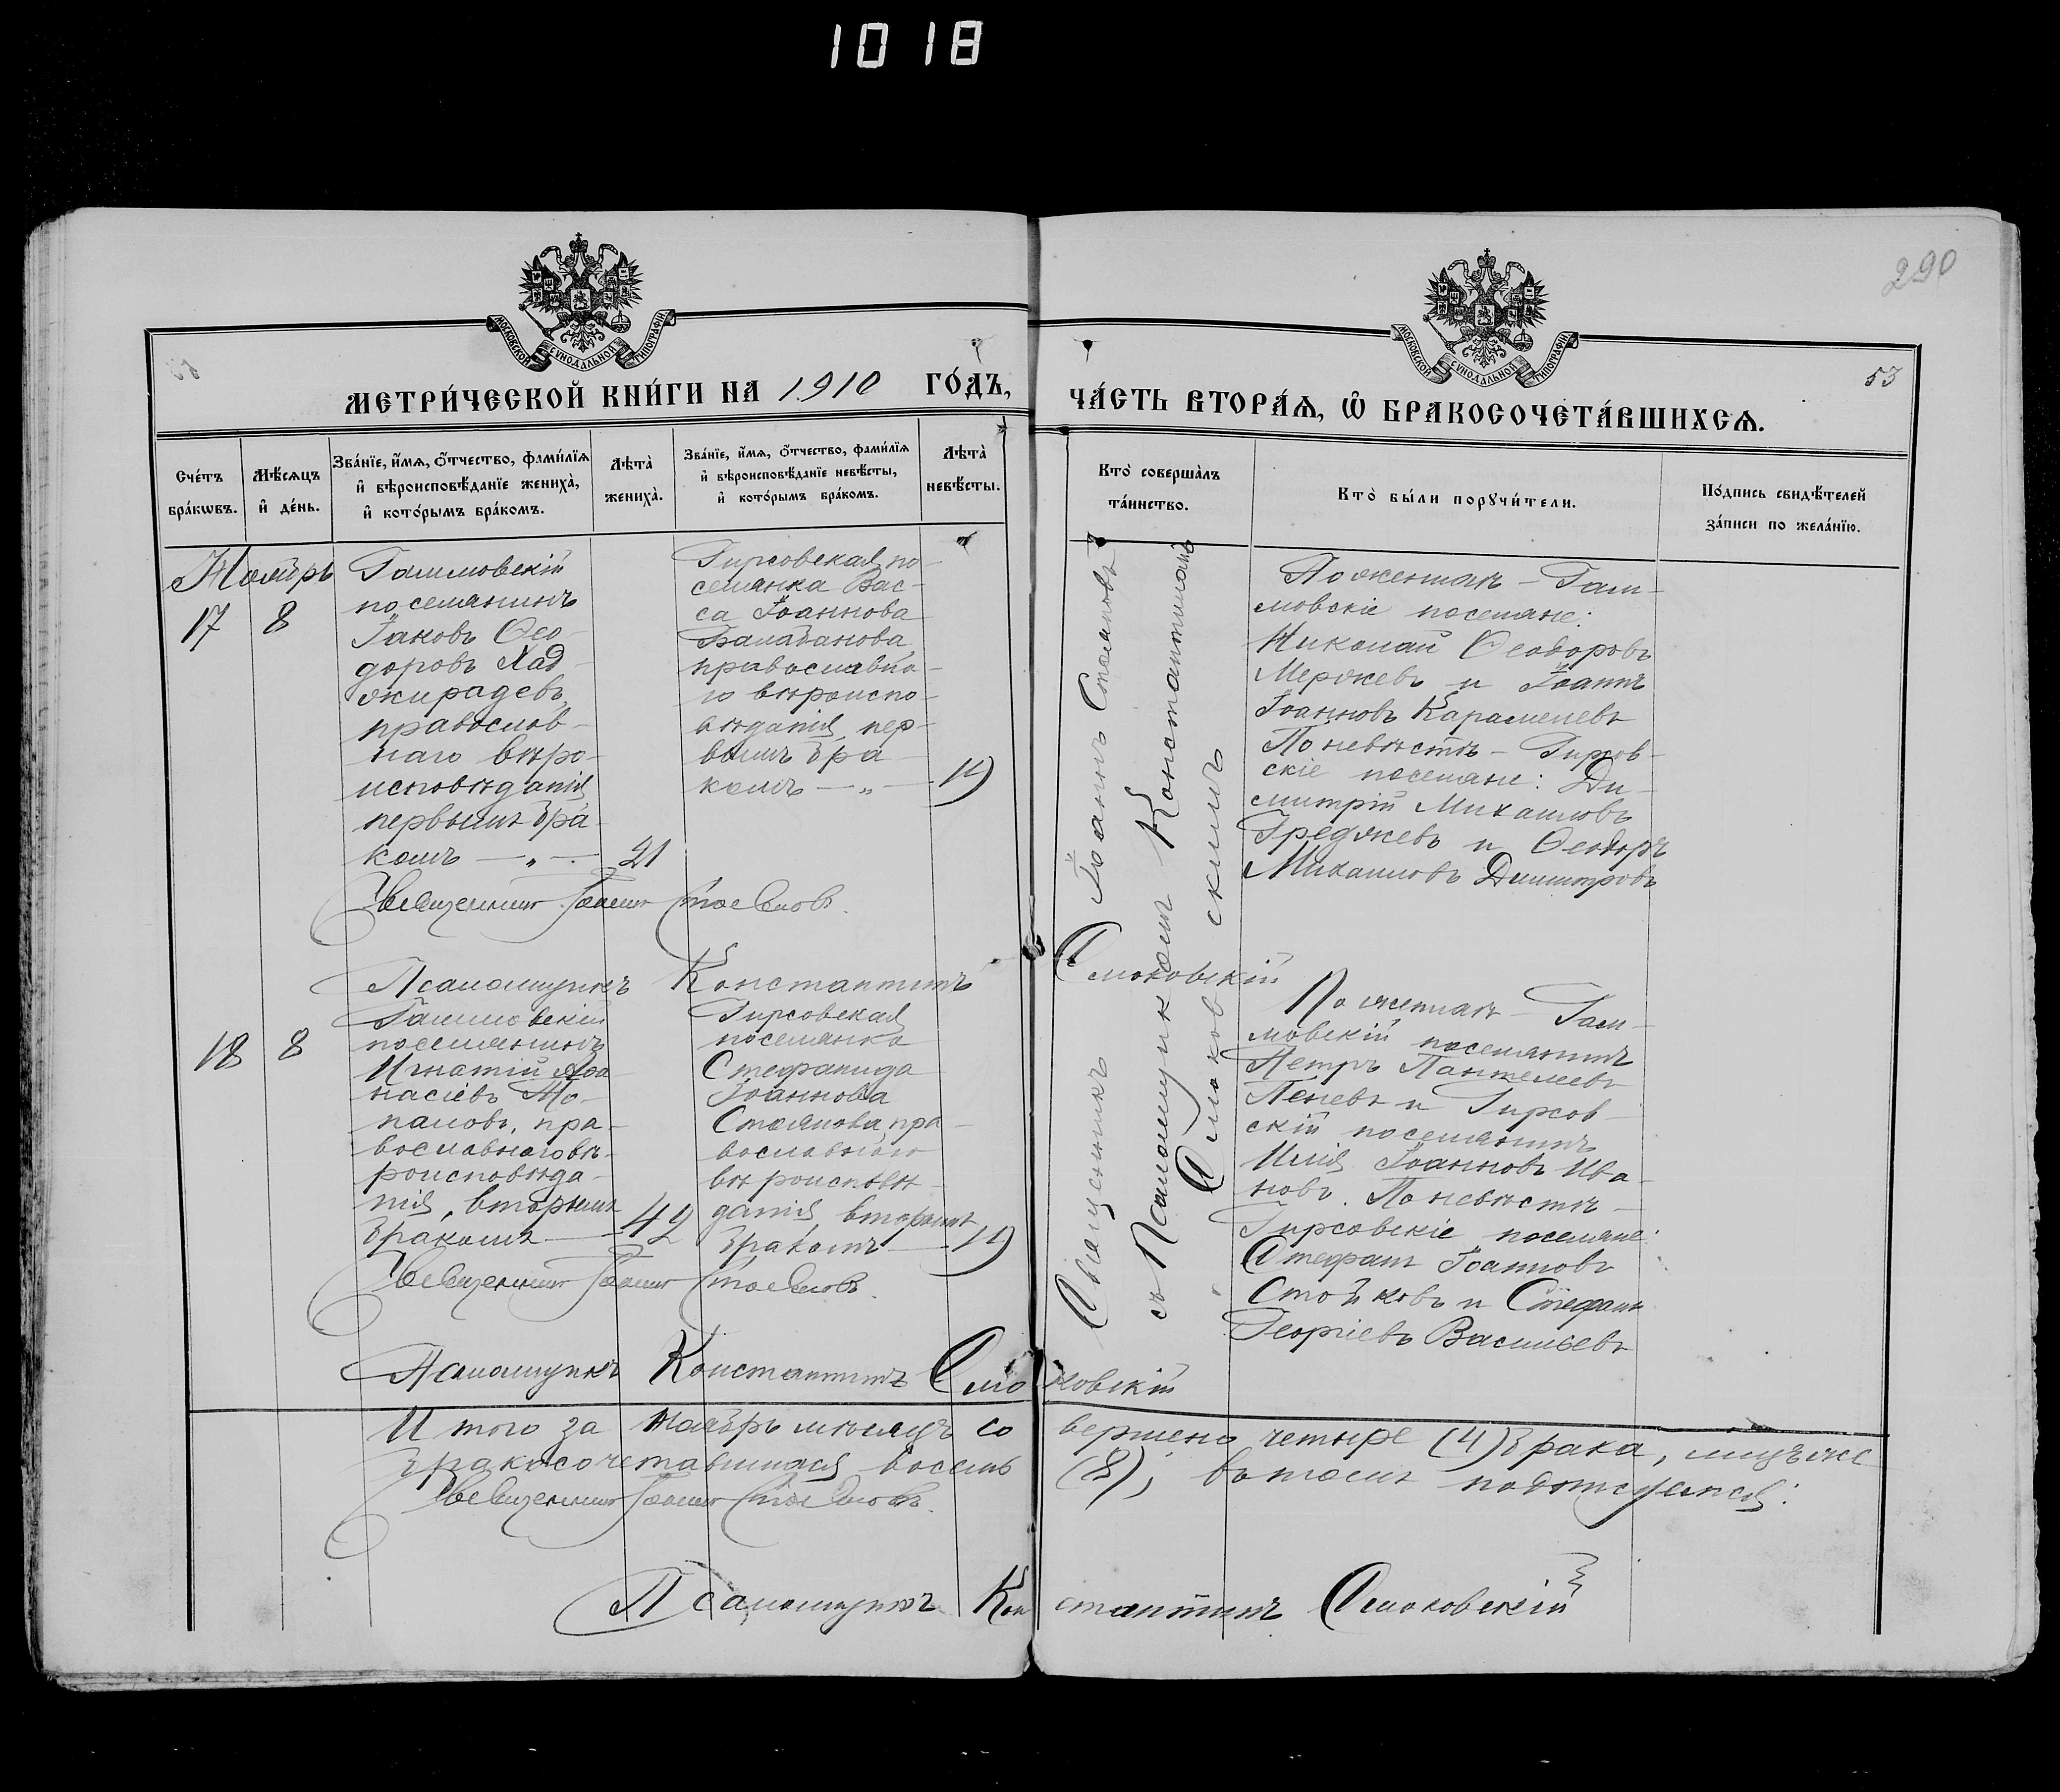 1018
290
53
МОСКОВСКОЙ СѴНОДАЛЬНОЙ ТИПОГРАФІИ
МОСКОВСКОЙ СѴНОДАЛЬНОЙ ТИПОГРАФІИ
МЕТРИ́ЧЕСКОЙ КНИ́ГИ НА 1910 ГО́ДЪ,
ЧА́СТЬ ВТОРА́Ѧ, Ѡ҆ БРАКОСОЧЕТА́ВШИХСѦ.
Сче́тъ бра́кѡвъ.
Мѣ́сяцъ и҆ де́нь.
Зва́нїе, и҆́мѧ, ѻ҆́тчество, фами́лїѧ
и҆ вѣроисповѣ́данїе жениха̀,
и҆ кото́рымъ бра́комъ.
Лѣта̀ жениха̀.
Зва́нїе, и҆́мѧ, ѻ҆́тчество, фами́лїѧ
и҆ вѣроисповѣ́данїе невѣ́сты,
и҆ кото́рымъ бра́комъ.
Лѣта̀ невѣ́сты.
Кто̀ соверша̀лъ та́инство.
Кто̀ бы́ли порꙋчи́тели.
По́дпись свидѣ́телей
за́писи по жела́нїю.
Ноябрь
17 8
Галиловскій
поселянинъ
Іаковъ Ѳео-
доровъ Хад-
жирадевъ,
православ-
наго вѣро-
исповѣданія
первымъ бра-
комъ — „ — 21
Гирсовская по-
селянка Вас-
са Іоаннова
Балабанова,
православна-
го вѣроиспо-
вѣданія, пер-
вымъ бра-
комъ — „ — 19
Священникъ Іоаннъ Стояновъ
съ Псаломщикомъ Константиномъ
Смоковскимъ
По женихѣ — Гали-
ловскіе поселяне:
Николай Ѳеодоровъ
Мержевъ и Іоаннъ
Іоанновъ Карамелевъ
По невѣстѣ — Гирсов-
скіе поселяне: Ди-
митрій Михаиловъ
Греджевъ и Ѳеодоръ
Михаиловъ Димитровъ
Священникъ Іоаннъ Стояновъ.
Псаломщикъ Константинъ Смоковскій
18 8
Галиловскій
поселянинъ
Игнатій Аѳа-
насіевъ
православнаго вѣ-
роисповѣда-
нія, вторымъ
бракомъ — 42
Гирсовская
поселянка
Стефанида
Іоаннова
Стоянова, пра-
вославнаго
вѣроисповѣ-
данія, вторымъ
бракомъ — 19
По женихѣ — Гали-
ловскій поселянинъ
Петръ Пантелеевъ
Пеневъ и Гирсов-
скій поселянинъ
Илія Іоанновъ Ива-
новъ. По невѣстѣ —
Гирсовскіе поселяне:
Стефанъ Іоанновъ
Стойковъ и Стефанъ
Георгіевъ Васильевъ
Священникъ Іоаннъ Стояновъ.
Псаломщикъ Константинъ Смоковскій
Итого за Ноябрь мѣсяцъ совершено четыре (4) брака, лицъ же
бракосочетавшихся восемь (8); въ томъ подписуемся:
Священникъ Іоаннъ Стояновъ.
Псаломщикъ Константинъ Смоковскій